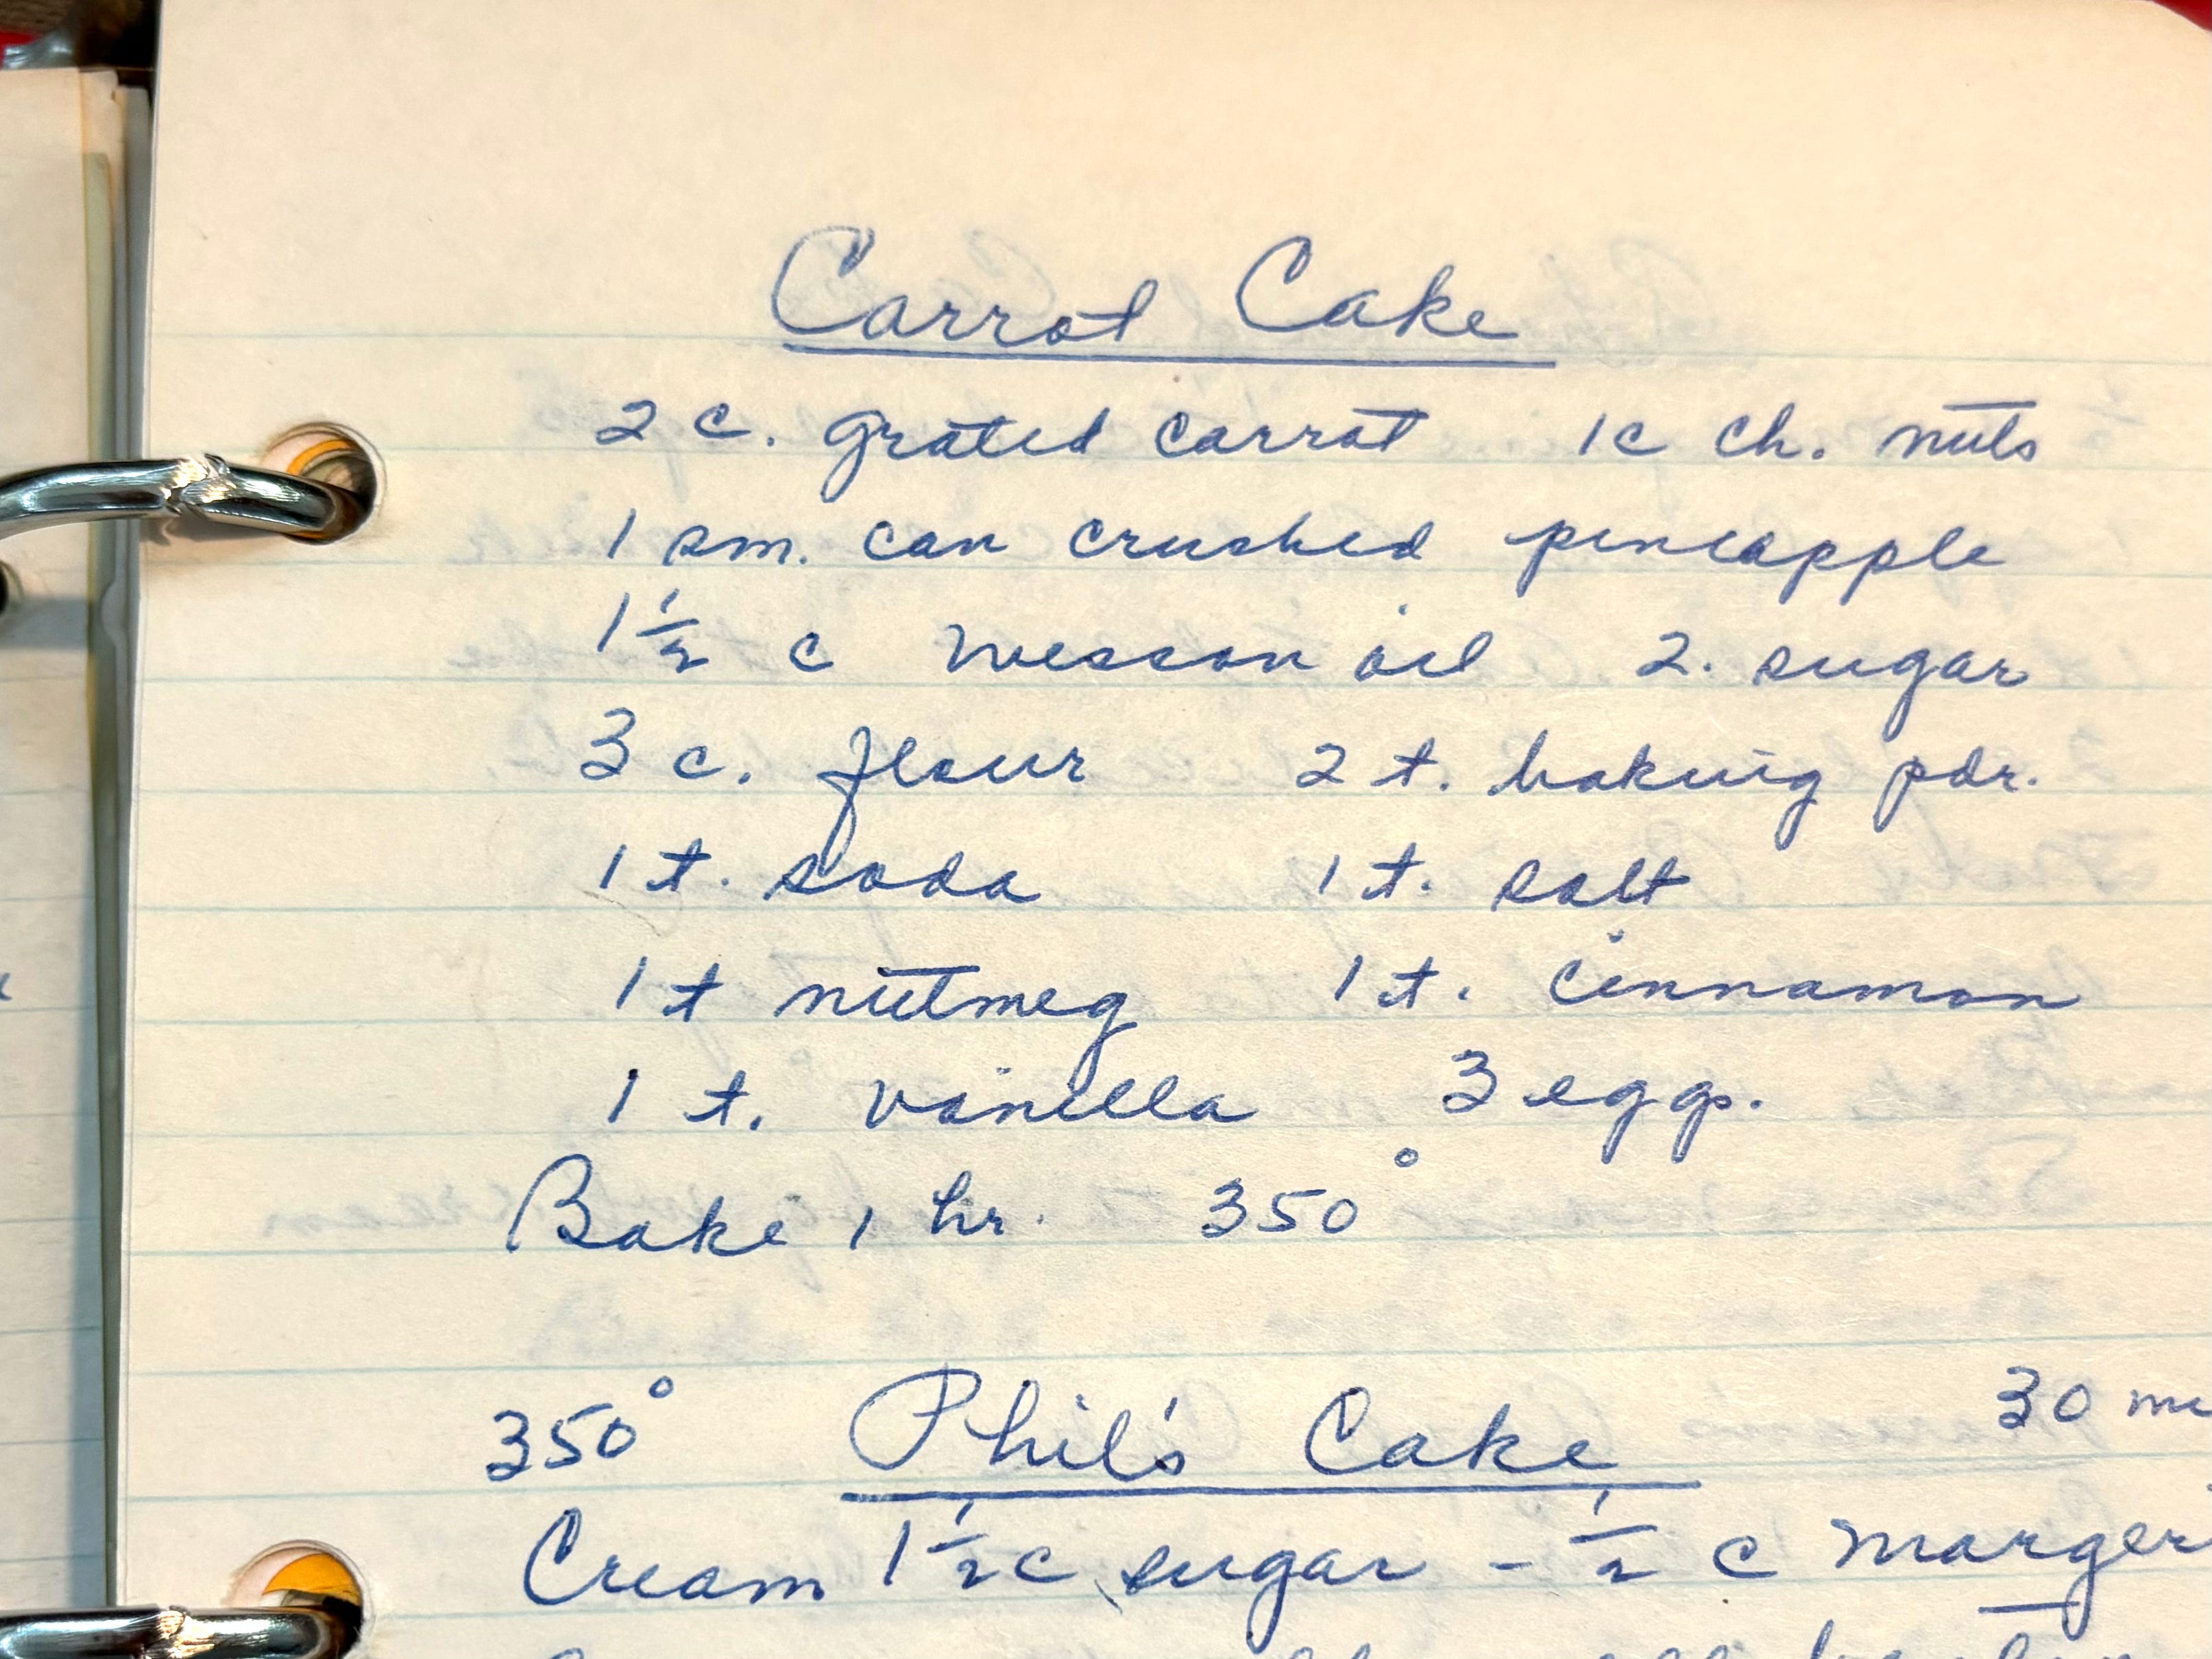 Carrot Cake
2 c. grated carrot 1c ch. nuts
1 sm. can crushed pineapple
1 1/2 c wesson oil 2. sugar
3 c. flour 2 t. baking pdr.
1 t. soda 1 t. salt
1 t nutmeg 1 t. cinnamon
1 t. vanilla 3 eggs.
Bake 1 hr. 350°
350° Phil's Cake 30
Cream 1 1/2 c sugar - 1/2 c